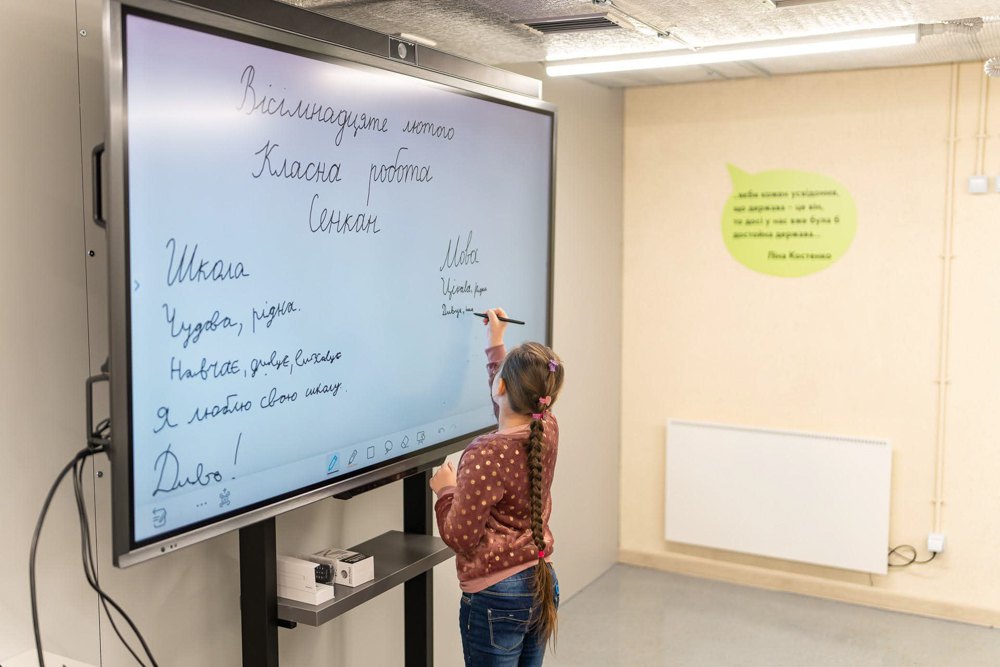 Вісімнадцяте лютого
Класна робота
Сенкан
Школа
Чудова, рідна.
Навчає, дивує, виховує
Я люблю свою школу.
Диво!
Мова
Цікава, рідна
Дивує,
що держава – це він,
то досі у нас вже була б
достойна держава...
Ліна Костенко